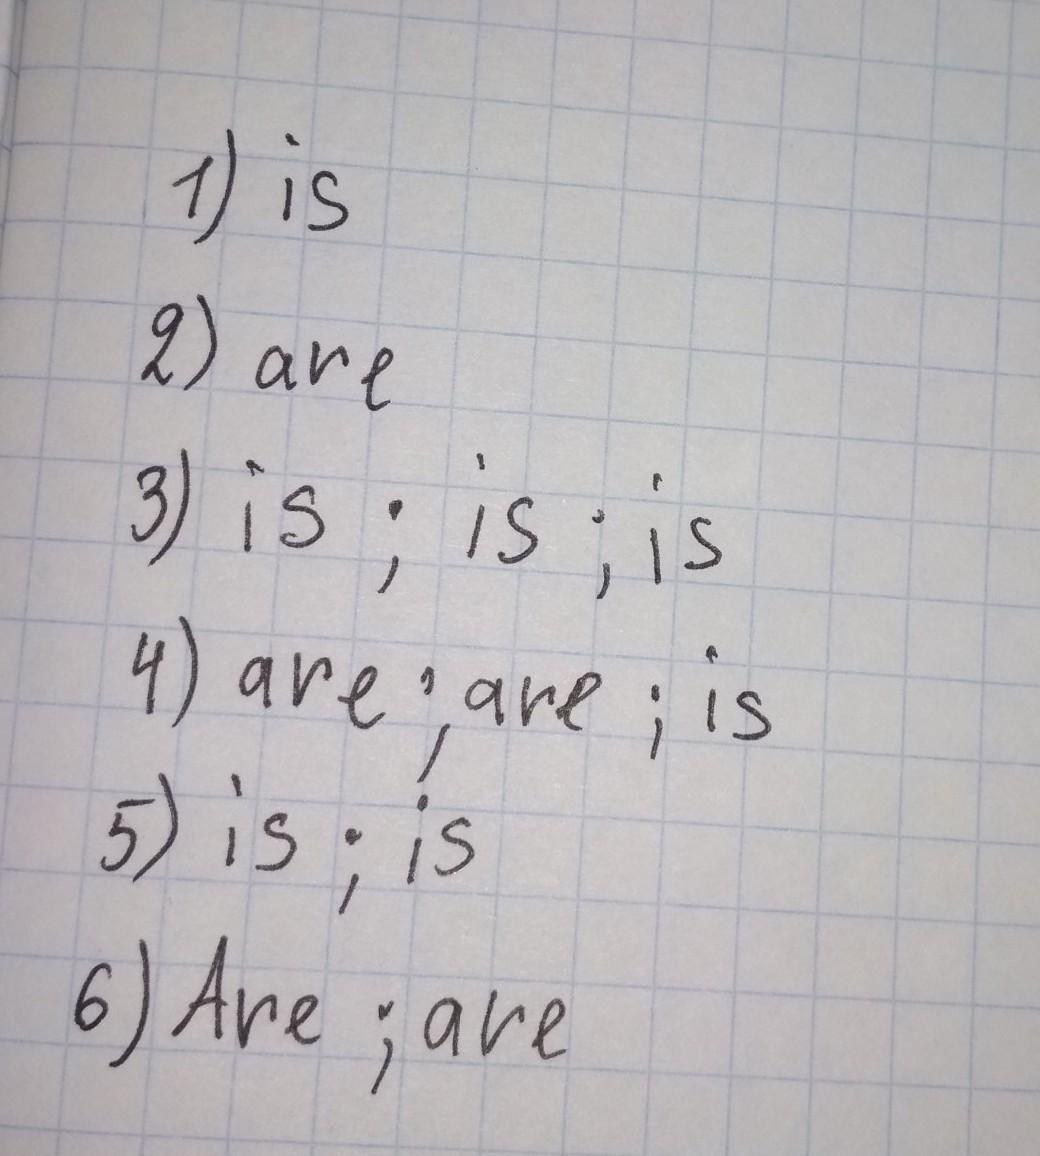 1) is
2) are
3) is ; is ; is
4) are ; are ; is
5) is ; is
6) Are ; are